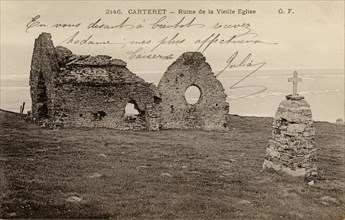 2146. CARTERET — Ruine de la Vieille Eglise G. F.
En vous disant à bientôt recevez
Madame mes plus affectueux
baisers
Julia